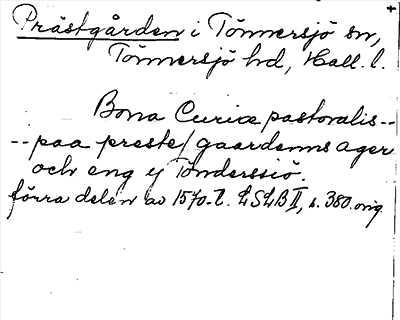 Prästgården i Tönnersjö sn,
Tönnersjö hd, Hall. l.
Bona Curiæ pastoralis--
--paa preste/gaardenns ager
och eng y Tönderssiö.
förra delen av 1570-t. LSLB II, s. 380. orig.